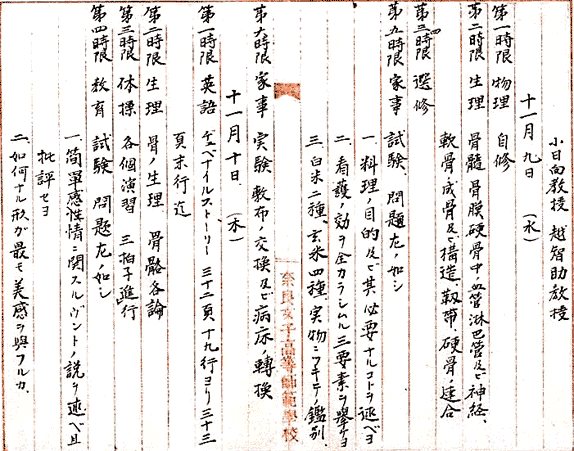 小日向教授 越智助教授
十一月九日 (水)
第一時限 物理 自修
第二時限 生理 骨髄、骨膜、硬骨中ノ血管淋巴管及ビ神経、
軟骨ノ成骨及ビ構造、靱帯、硬骨ノ連合
第三時限 選修
第五時限 家事 試験、問題左ノ如シ
一、料理ノ目的及ビ其必要ナルコトヲ述ベヨ
二、看護ノ効ヲ全カラシムル三要素ヲ挙ケヨ
三、白米二種、玄米四種、実物ニツキテノ鑑別、
第六時限 家事 実験 敷布ノ交換及ビ病床ノ轉換
十一月十日、 (木)
第一時限 英語 ヂュベナイルストーリー 三十二頁十九行ヨリ三十三
頁末行迄
第二時限 生理 骨ノ生理 骨骼各論
第三時限 体操 各個演習 三拍子進行
第四時限 教育 試験 問題左ノ如シ
一、簡単感性情ニ関スルヴントノ説ヲ述ベ且
批評セヨ
二、如何ナル形ガ最モ美感ヲ與フルカ、
奈良女子高等師範學校